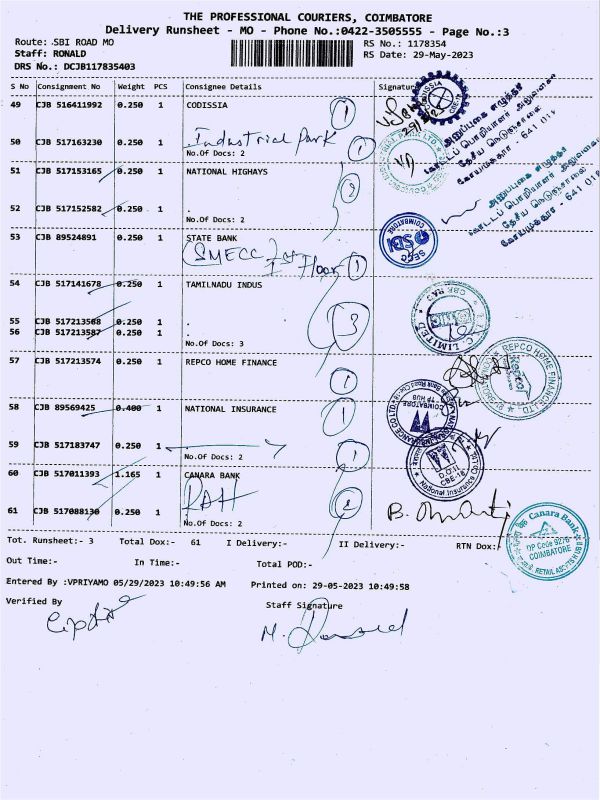 THE PROFESSIONAL COURIERS, COIMBATORE
Delivery Runsheet - MO - Phone No.:0422-3505555 - Page No.:3
Route: SBI ROAD MO RS No.: 1178354
Staff: RONALD RS Date: 29-May-2023
DRS No.: DCJB117835403
S No Consignment No Weight PCS Consignee Details Signature
49 CJB 516411992 0.250 1 CODISSIA 1
Industrial Park
50 CJB 517163230 0.250 1 1
No.Of Docs: 2
51 CJB 517153165 0.250 1 NATIONAL HIGHAYS
2
52 CJB 517152582 0.250 1 .
No.Of Docs: 2
53 CJB 89524891 0.250 1 STATE BANK
(SMECC) 1st
Floor 1
54 CJB 517141678 0.250 1 TAMILNADU INDUS
55 CJB 517213568 0.250 1 . 3
56 CJB 517213587 0.250 1 .
No.Of Docs: 3
57 CJB 517213574 0.250 1 REPCO HOME FINANCE
1
58 CJB 89569425 0.400 1 NATIONAL INSURANCE 1
59 CJB 517183747 0.250 1 1
No.Of Docs: 2
60 CJB 517011393 1.165 1 CANARA BANK
RAH 2
61 CJB 517088130 0.250 1
No.Of Docs: 2
Tot. Runsheet:- 3 Total Dox:- 61 I Delivery:- II Delivery:- RTN Dox:-
Out Time:- In Time:- Total POD:-
Entered By :VPRIYAMO 05/29/2023 10:49:56 AM Printed on: 29-05-2023 10:49:58
Verified By Staff Signature
CODISSIA
அறுப்புகை எழுத்தர்
தேசிய நெடுஞ்சாலை
கோயமுத்தூர் - 641 018
SECC
SBI
COIMBATORE
REPCO HOME FINANCE LTD.
Repco
COIMBATORE
TP HUB
D.O.II
CBE-18
National Insurance Co
Canara Bank
DP Code 9276
COIMBATORE
RETAIL ASSETS HUB